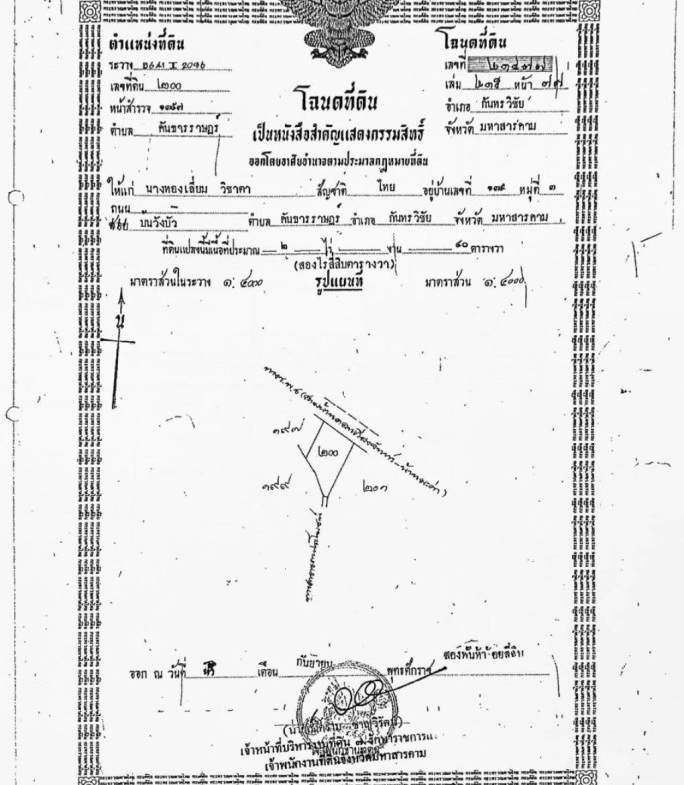 ตำแหน่งที่ดิน
โฉนดที่ดิน
ระวาง ๕๖๔๑ I ๖๐๙๖
เลขที่ ๒๑๔๗๗
เลขที่ดิน ๒๐๐
เล่ม ๒๑๕ หน้า ๗๗
หน้าสำรวจ
อำเภอ กันทรวิชัย
ตำบล คันธารราษฎร์
จังหวัด มหาสารคาม
โฉนดที่ดิน
เป็นหนังสือสำคัญแสดงกรรมสิทธิ์
ออกโดยอาศัยอำนาจตามประมวลกฎหมายที่ดิน
ให้แก่ นางทองเลี่ยม วิชาคา สัญชาติ ไทย อยู่บ้านเลขที่ หมู่ที่ ๓
ถนน
บ้านวังบัว ตำบล คันธารราษฎร์ อำเภอ กันทรวิชัย จังหวัด มหาสารคาม
ที่ดินแปลงนี้มีเนื้อที่ประมาณ ๒ ไร่ งาน ๔๐ ตารางวา
(สองไร่สี่สิบตารางวา)
มาตราส่วนในระวาง ๑: ๔๐๐๐ รูปแผนที่ มาตราส่วน ๑: ๔๐๐๐
น
๑๙๗
๒๐๐
๑๙๙
๒๐๑
ออก ณ วันที่ เดือน กันยายน พุทธศักราช สองพันห้าร้อยสี่สิบ
เจ้าพนักงานที่ดินจังหวัดมหาสารคาม